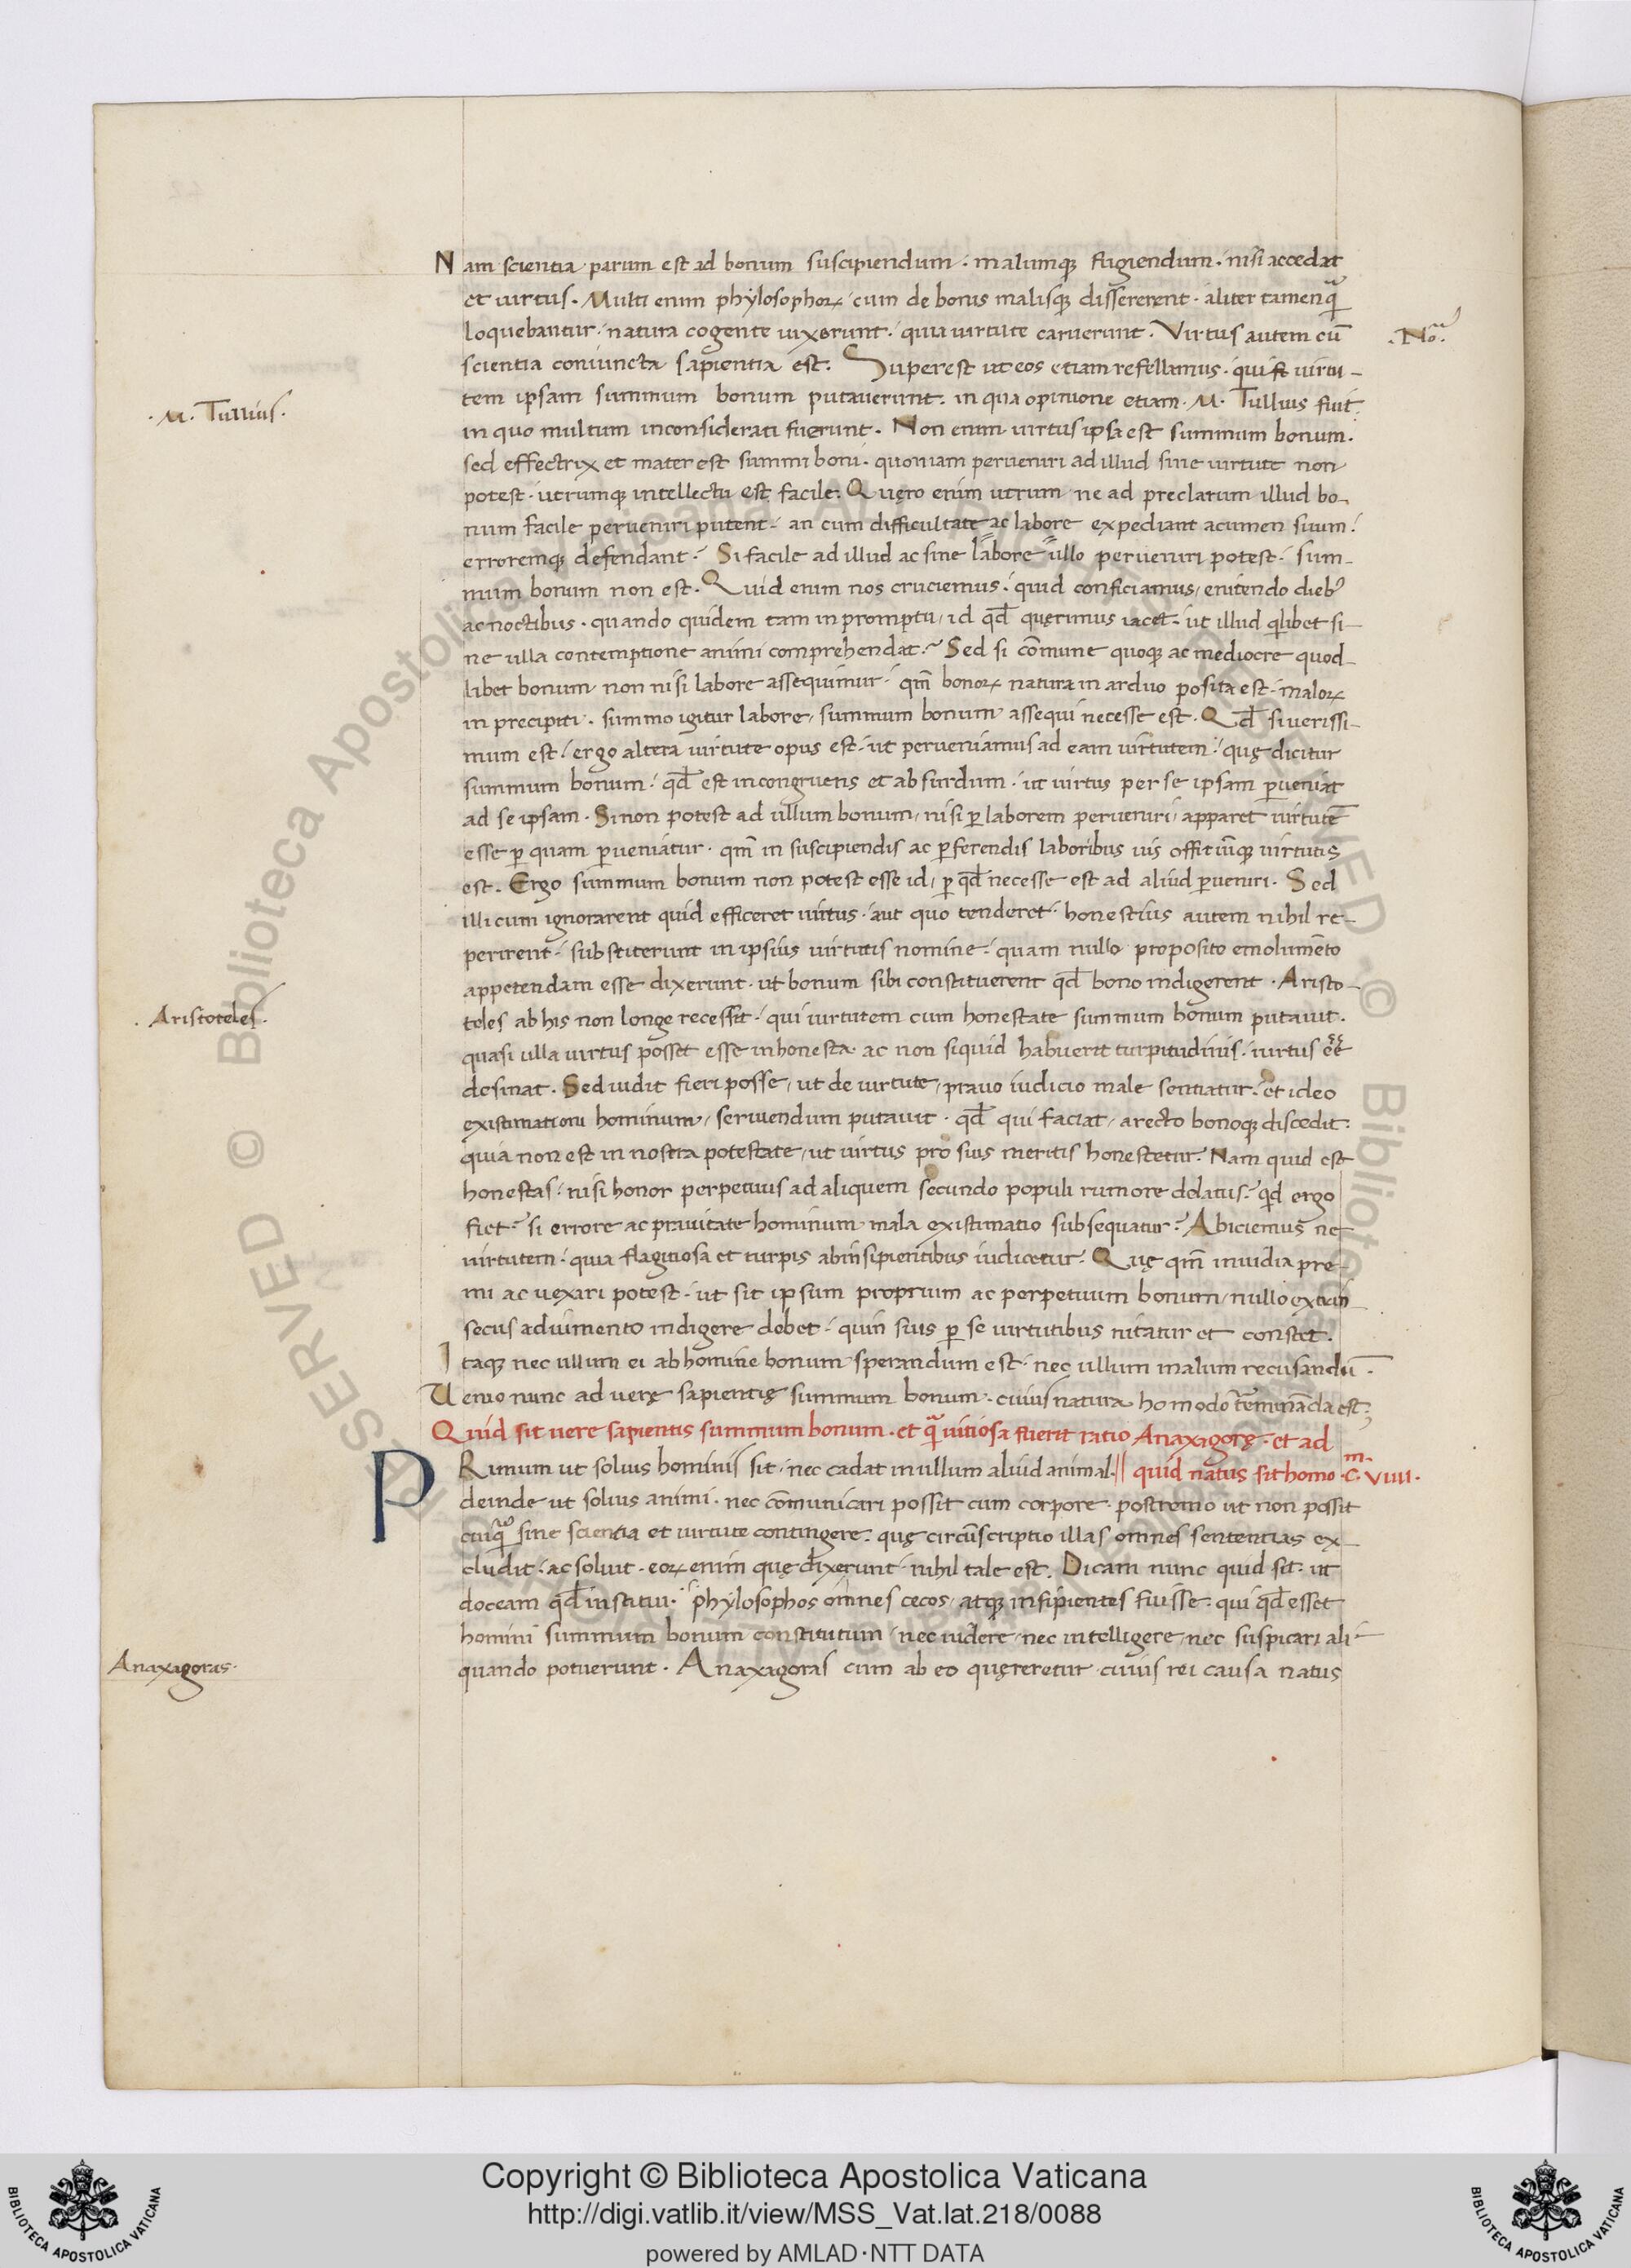 Nam scientia parum est ad bonum suscipiendum · malumqꝫ fugiendum · nisi accedat
et uirtus · Multi enim phylosophoꝝ · cum de bonis malisqꝫ dissererent · aliter tamen qᷓ
loquebantur · natura cogente uixerunt · quia uirtute caruerunt · Virtus autem cū
.Noᷓ.
scientia coniuncta sapientia est. Superest ut eos etiam refellamus · qui uirtu-
.M. Tullius.
tem ipsam summum bonum putauerunt · in qua opinione etiam · M. Tullius fuit
in quo multum inconsiderati fuerunt. Non enim uirtus ipsa est summum bonum.
sed effectrix et mater est summi boni · quoniam perueniri ad illud sine uirtute non
potest · utrumqꝫ intellectu est facile. Quęro enim utrum ne ad preclarum illud bo-
num facile perueniri putent · an cum difficultate ac labore expediant acumen suum ·
erroremqꝫ defendant? Si facile ad illud ac sine labore ullo perueniri potest · sum-
mum bonum non est. Quid enim nos cruciemus · quid conficiamus, enitendo dieb᷒
ac noctibus · quando quidem tam in promptu, id qd̄ quęrimus iacet · ut illud qlibet si-
ne ulla contemptione animi comprehendat? Sed si cōmune quoqꝫ ac mediocre quod-
libet bonum non nisi labore assequimur · qm̄ bonoꝝ natura in arduo posita est · maloꝝ
in precipiti · summo igitur labore, summum bonum assequi necesse est · Qd̄ si uerissi-
mum est · ergo altera uirtute opus est · ut perueniamus ad eam uirtutem · quę dicitur
summum bonum · qd̄ est incongruens et absurdum · ut uirtus per se ipsam ꝑueniat
ad se ipsam · Si non potest ad ullum bonum, nisi ꝑ laborem perueniri, apparet uirtutē
esse ꝑ quam ꝑueniatur · qm̄ in suscipiendis ac ꝑferendis laboribus uis offitiūqꝫ uirtutis
est. Ergo summum bonum non potest esse id, ꝑ qd̄ necesse est ad aliud ꝑueniri · Sed
illi cum ignorarent quid efficeret uirtus · aut quo tenderet · honestius autem nihil re-
perirent · substiterunt in ipsius uirtutis nomine · quam nullo proposito emolumēto
appetendam esse dixerunt · ut bonum sibi constituerent qd̄ bono indigerent · Aristo-
. Aristoteles.
teles ab his non longe recessit · qui uirtutem cum honestate summum bonum putauit.
quasi ulla uirtus posset esse inhonesta · ac non siquid habuerit turpitudinis · uirtus eē
desinat. Sed uidit fieri posse, ut de uirtute, prauo iudicio male sentiatur · et ideo
existimationi hominum, seruiendum putauit · qd̄ qui faciat, a recto bonoqꝫ discedit.
quia non est in nostra potestate, ut uirtus pro suis meritis honestetur. Nam quid est
honestas · nisi honor perpetuus ad aliquem secundo populi rumore delatus? qd ergo
fiet? si errore ac prauitate hominum mala existimatio subsequatur? Abiciemus ne
uirtutem · quia flagitiosa et turpis ab insipientibus iudicetur · Quę qm̄ inuidia pre-
mi ac uexari potest · ut sit ipsum proprium ac perpetuum bonum, nullo extrin
secus adiumento indigere debet · quin suis ꝑ se uirtutibus nitatur et constet.
Itaqꝫ nec ullum ei ab homine bonum sperandum est · nec ullum malum recusandū.
Uenio nunc ad uerę sapientię summum bonum · cuius natura ho modo
Quid sit uere sapientis summum bonum · et qᷓ uitiosa fuerit ratio Anaxagorę · et ad
PRimum ut solius hominis sit · nec cadat in ullum aliud animal · || quid natus sit homo · C. VIIII.
deinde ut solius animi · nec cōmunicari possit cum corpore · postremo ut non possit
cuiqᷓ sine scientia et uirtute contingere · quę circūscriptio illas omnes sententias ex-
cludit · ac soluit · eoꝝ enim quę dixerunt · nihil tale est. Dicam nunc quid sit · ut
doceam qd̄ institui · phylosophos omnes cecos, atqꝫ insipientes fuisse · qui qd̄ esset
homini summum bonum constitutum · nec uidere · nec intelligere, nec suspicari ali-
Anaxagoras·
quando potuerunt · Anaxagoras cum ab eo quęreretur cuius rei causa natus
© Biblioteca Apostolica Vaticana
Copyright © Biblioteca Apostolica Vaticana
http://digi.vatlib.it/view/MSS_Vat.lat.218/0088
powered by AMLAD·NTT DATA
BIBLIOTECA APOSTOLICA VATICANA
BIBLIOTECA APOSTOLICA VATICANA